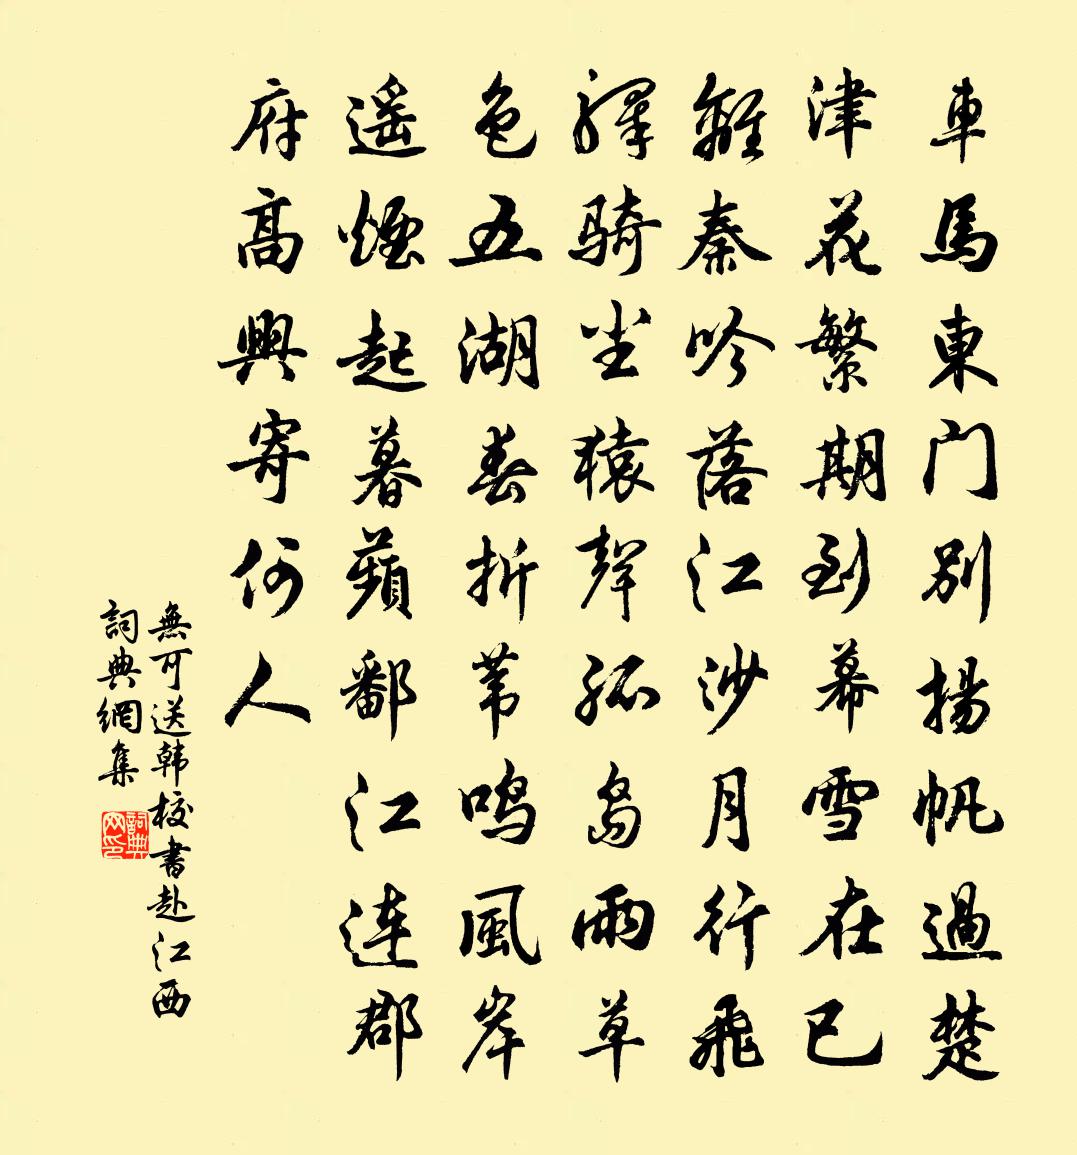 車馬東门别揚帆過楚
津花繁期到幕雪在已
離秦吟落江沙月行飛
驛騎尘猿聲孤島雨草
色五湖春折苇鸣風岸
遥煙起暮蘋鄱江連郡
府高興寄何人
無可送韩校書赴江西
詞典網集
詞典网印